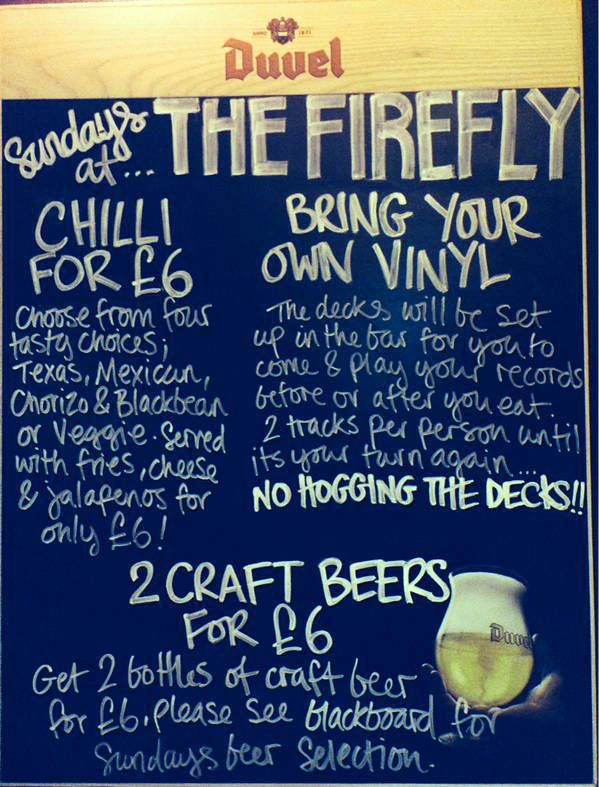 ANNO 1871
Duvel
Sundays
at...
THE FIREFLY
CHILLI
FOR £6
Choose from four
tasty choices;
Texas, Mexican,
Chorizo & Blackbean
or Veggie. Served
with fries, cheese
& jalapenos for
only £6!
BRING YOUR
OWN VINYL
The decks will be set
up in the bar for you to
come & play your records
before or after you eat.
2 tracks per person until
its your turn again...
NO HOGGING THE DECKS!!
2 CRAFT BEERS
FOR £6
Get 2 bottles of craft beer
for £6. please see blackboard for
Sundays beer selection.
Duvel